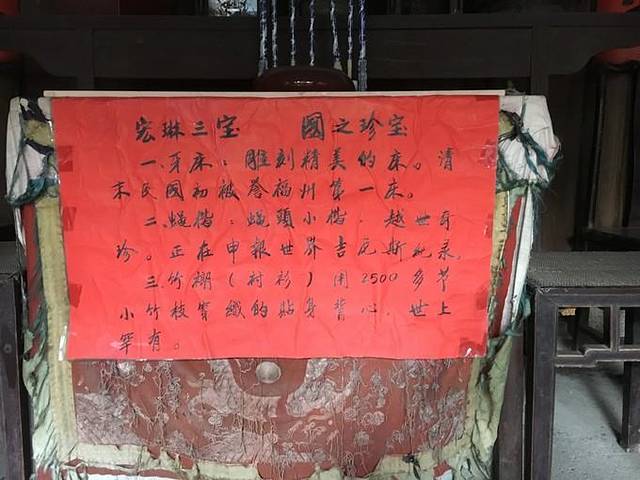 宏琳三宝 國之珍宝
一、牙床：雕刻精美的床。清
末民國初被誉福州第一床。
二、蝇楷：蝇頭小楷，越世奇
珍。正在申報世界吉尼斯纪录。
三、竹𧛾（衬衫）用2500多节
小竹枝穿織的貼身背心，世上
罕有。